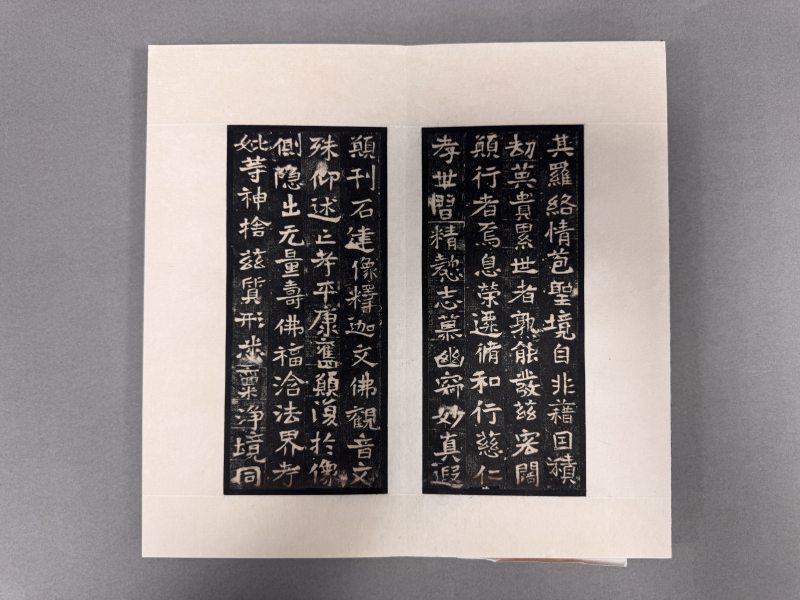 其羅絡情苞聖境自非藉因積
劫英貴累世者孰能發茲宏闊
願行者焉息榮遷脩和行慈仁
孝世習精懃志慕幽寂妙真遐
願刊石建像釋迦文佛觀音文
殊仰述亡考平康舊願復於像
側隱出无量壽佛福洽法界考
妣等神捨茲質形悉稟淨境同